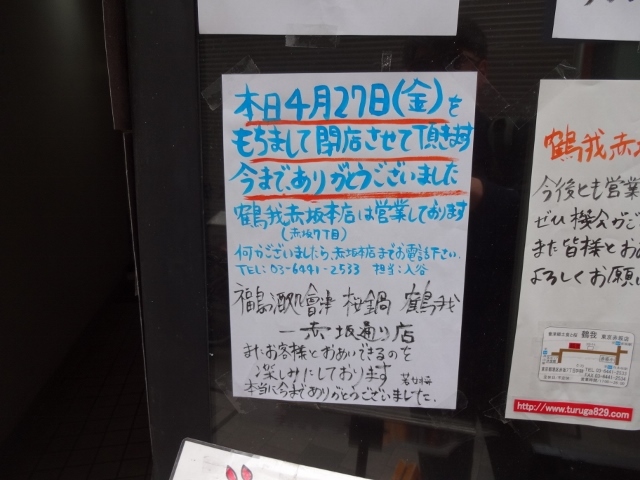 本日4月27日(金)を
もちまして閉店させて頂きます
今までありがとうございました
鶴我赤坂本店は営業しております
(赤坂7丁目)
何かございましたら、赤坂本店までお電話下さい。
TEL:03-6441-2533 担当:入谷
福島の酒処 會津 桜鍋 鶴我
一赤坂通り店
またお客様とおあいできるのを
楽しみにしております
本当に今までありがとうございました。
鶴我赤坂
今後とも営業
ぜひ機会がご
また皆様とお
よろしくお願い
http://www.turuga829.com